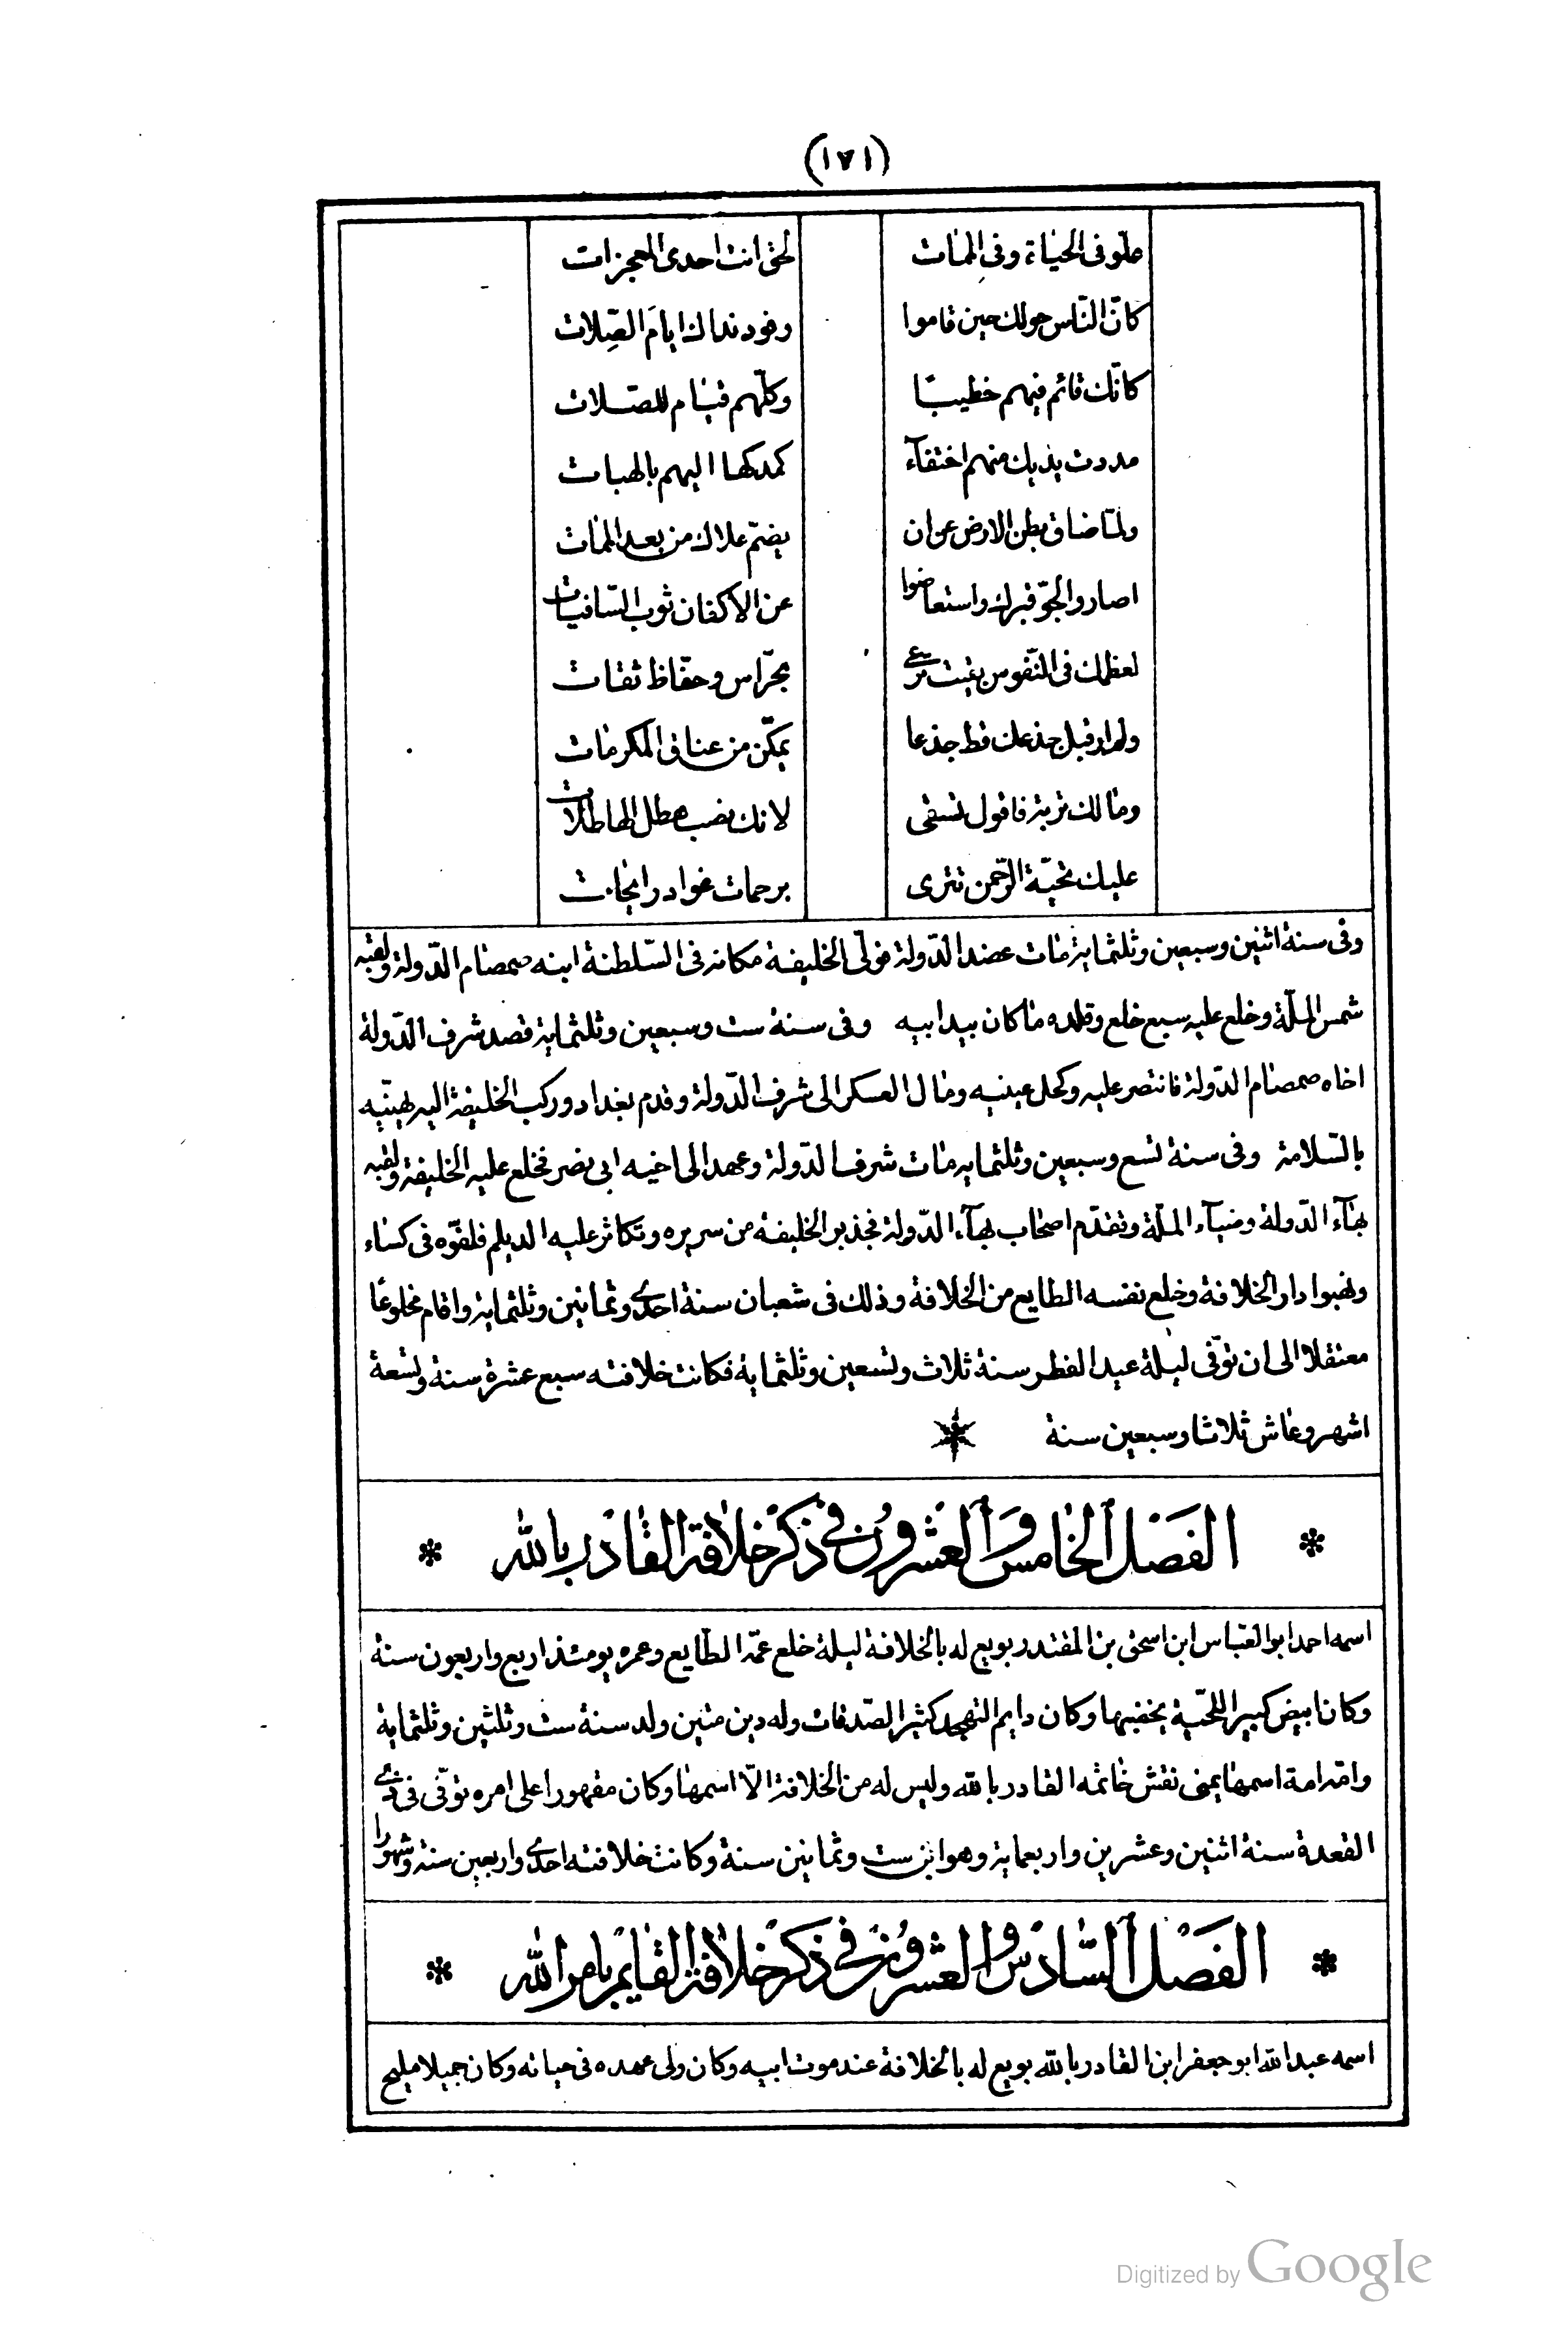 (١٧١)
علوّ فى الحياة وفى الممات لحق انت احدى المعجزات
كانّ النّاس حولك حين قاموا وفود نداك ايامَ الصِّلات
كانّك قائم فيهم خطيبًا وكلّهم قيام للصّلات
مددت يديك منهم اختفآء كمدكها اليهم بالهبات
ولمّا ضاق بطن الارض عن ان يضمّ علاك من بعد الممات
اصاروا لجوّ قبرك واستعاضوا عن الاكفان ثوب السّافيات
لعظمك فى النّفوس بقيت ترعى بحرّاس وحفّاظ ثقات
ولم ار قبل جذعك قط جذعا يمكّن من عناق المكرمات
ومالك تربة فاقول تسقى لانك نصب هطل الهاطلات
عليك تحيّة الرّحمن تترى برحمات غواد رايحات
وفى سنة اثنين وسبعين وثلثماية مات عضد الدّولة فولّى الخليفة مكانه فى السّلطنة ابنه صمصام الدّولة ولقبه
شمس الملّة وخلع عليه سبع خلع وقلده ما كان بيد ابيه وفى سنة ست وسبعين وثلثماية قصد شرف الدّولة
اخاه صمصام الدّولة فانتصر عليه وكحل عينيه ومال العسكر الى شرف الدّولة وقدم بغداد وركب الخليفة اليه يهينّيه
بالسّلامة وفى سنة تسع وسبعين وثلثمايه مات شرف الدّولة وعهد الى اخيه ابى نصر فخلع عليه الخليفة ولقبه
بهآء الدّولة وضيآء الملّة وتقدّم اصحاب بهآء الدّولة فجذبوا الخليفة من سريره وتكاثر عليه الديلم فلفوّه فى كساء
ونهبوا دار الخلافة وخلع نفسه الطايع من الخلافة وذلك فى شعبان سنة احدى وثمانين وثلثماية واقام مخلوعًا
معتقلا الى ان توفّى ليلة عيد الفطر سنة ثلاث وتسعين وثلثماية فكانت خلافته سبع عشرة سنة وتسعة
اشهر وعاش ثلاثا وسبعين سنة
* الفَصْل الخامس وَالعشرون فى ذكر خلافة القادر بالله *
اسمه احمد ابو العبّاس ابن اسحق بن المقتدر بويع له بالخلافة ليلة خلع عمّه الطّايع وعمره يومئذ اربع واربعون سنة
وكان ابيض كبير اللحّية يخضبها وكان دايم التهجد كثير الصّدقات وله دين متين ولد سنة ست وثلثين وثلثماية
وامّه امة اسمها يمنى نقش خاتمه القادر بالله وليس له من الخلافة الّا اسمها وكان مقهورا على امره توفّى فى ذى
القعدة سنة اثنين وعشرين واربعماية وهو ابن ست وثمانين سنة وكانت خلافته احدى واربعين سنة وشهورا
* الفَصْل السّادس والعشرون فى ذكر خلافة القايم بامر الله *
اسمه عبد الله ابو جعفر ابن القادر بالله بويع له بالخلافة عند موت ابيه وكان ولى عهده فى حياته وكان جميلا مليح
Digitized by Google